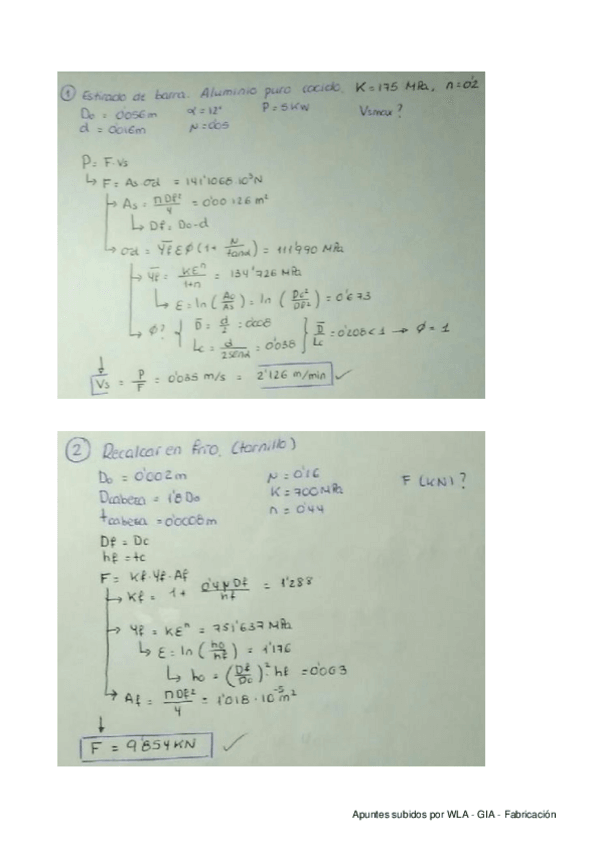 ① Estirado de barra. Aluminio puro cocido. K=175 MPa, n=0'2
D₀ = 0'056m α=12° P=5KW Vsmax?
d = 0'016m N=0'05
P= F·Vs
↳ F= As·σd = 141'1068·10³N
↳ As= πDf²/4 = 0'00126 m²
↳ Df= Do-d
↳ σd = Ȳf ε ϕ (1+ N/tanα) = 111'990 MPa
↳ Ȳf = Kεⁿ/1+n = 134'726 MPa
↳ ε= ln (Ao/As) = ln (Do²/Df²) = 0'673
↳ ϕ? { D̄ = d/2 = 0'008
Lc = d/2senα = 0'038 } D̄/Lc =0'208<1 → ϕ=1
↓
Vs = P/F = 0'035 m/s = 2'126 m/min ✓
② Recalcar en frío. (tornillo)
Do = 0'002m N = 0'16 F (KN)?
Dcabeza = 1'8 Do K = 700 MPa
tcabeza = 0'0008m n = 0'44
Df = Dc
hf = tc
F= Kf·Yf·Af
↳ Kf = 1+ 0'4NDf/hf = 1'288
↳ Yf = Kεⁿ = 751'637 MPa
↳ ε= ln (ho/hf) = 1'176
↳ ho = (Df/Dc)²·hf = 0'003
↳ Af = πDf²/4 = 1'018·10⁻⁵m²
↓
F = 9'854KN ✓
Apuntes subidos por WLA - GIA - Fabricación